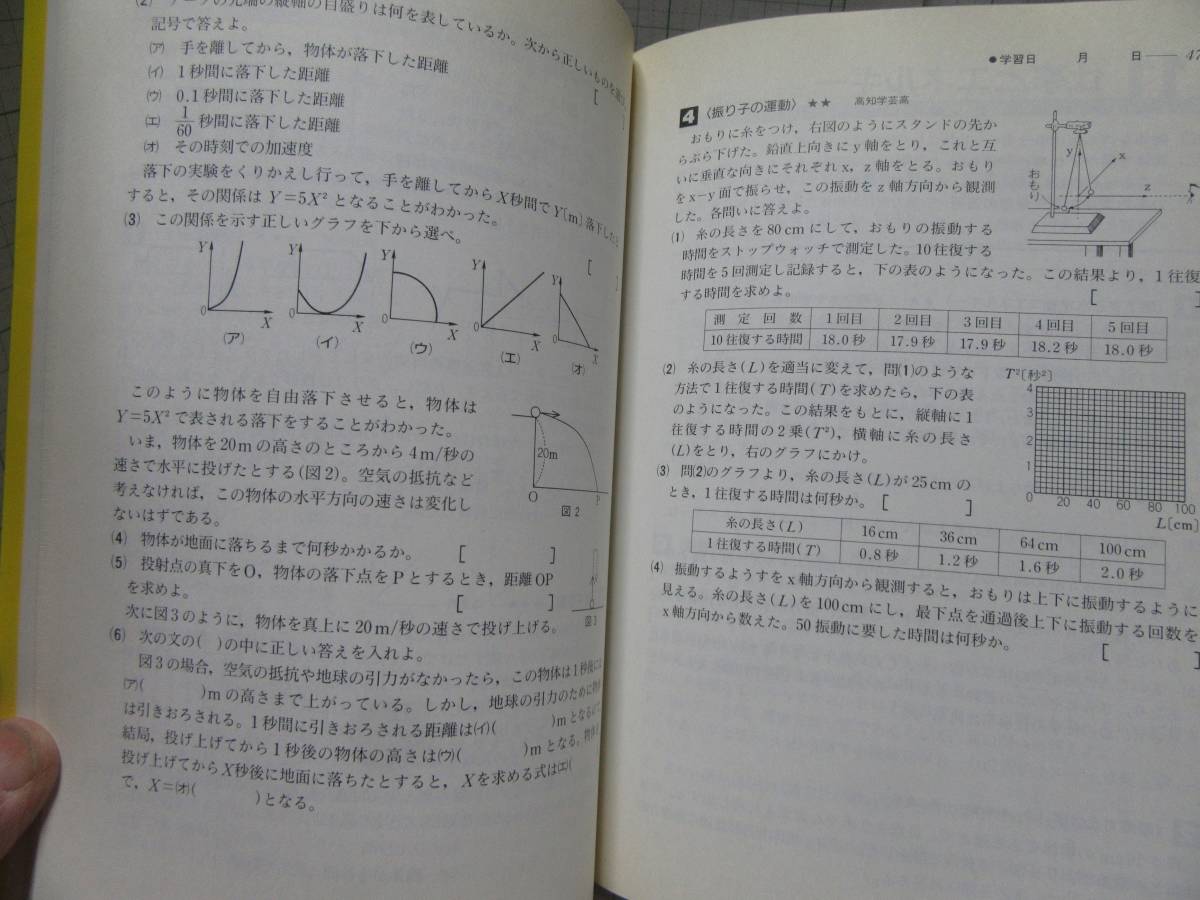 (2) テープの先端の縦軸の目盛りは何を表しているか。次から正しいものを選び,
記号で答えよ。 [ ]
(ア) 手を離してから, 物体が落下した距離
(イ) 1秒間に落下した距離
(ウ) 0.1秒間に落下した距離
(エ) 1/60 秒間に落下した距離
(オ) その時刻での加速度
落下の実験をくりかえし行って, 手を離してからX秒間でY〔m〕落下したと
すると, その関係は Y=5X² となることがわかった。
(3) この関係を示す正しいグラフを下から選べ。 [ ]
Y Y Y Y Y
0 X 0 X 0 X 0 X 0 X
(ア) (イ) (ウ) (エ) (オ)
このように物体を自由落下させると, 物体は
Y=5X² で表される落下をすることがわかった。
いま, 物体を20mの高さのところから4m/秒の
速さで水平に投げたとする(図2)。空気の抵抗など
考えなければ, この物体の水平方向の速さは変化し
ないはずである。
20m
O P
図2
(4) 物体が地面に落ちるまで何秒かかるか。 [ ]
(5) 投射点の真下をO, 物体の落下点をPとするとき, 距離OP
を求めよ。 [ ]
図3
次に図3のように, 物体を真上に20m/秒の速さで投げ上げる。
(6) 次の文の( )の中に正しい答えを入れよ。
図3の場合, 空気の抵抗や地球の引力がなかったら, この物体は1秒後には
(ア)( )mの高さまで上がっている。しかし, 地球の引力のために物体
は引きおろされる。1秒間に引きおろされる距離は(イ)( )mとなるので
結局, 投げ上げてから1秒後の物体の高さは(ウ)( )mとなる。物体を
投げ上げてからX秒後に地面に落ちたとすると, Xを求める式は(エ)(
で, X=(オ)( )となる。
●学習日 月 日 47
4 〈振り子の運動〉 ★★ 高知学芸高
おもりに糸をつけ, 右図のようにスタンドの先か
らぶら下げた。鉛直上向きにy軸をとり, これと互
いに垂直な向きにそれぞれx, z軸をとる。おもり
をx−y面で振らせ, この振動をz軸方向から観測
した。各問いに答えよ。
y
x
z
おもり
(1) 糸の長さを80cmにして, おもりの振動する
時間をストップウォッチで測定した。10往復する
時間を5回測定し記録すると, 下の表のようになった。この結果より, 1往復
する時間を求めよ。 [
測定回数 1回目 2回目 3回目 4回目 5回目
10往復する時間 18.0秒 17.9秒 17.9秒 18.2秒 18.0秒
(2) 糸の長さ(L)を適当に変えて, 問(1)のような
方法で1往復する時間(T)を求めたら, 下の表
のようになった。この結果をもとに, 縦軸に1
往復する時間の2乗(T²), 横軸に糸の長さ
(L)をとり, 右のグラフにかけ。
T²〔秒²〕
4
3
2
1
0 20 40 60 80 100
L〔cm〕
(3) 問(2)のグラフより, 糸の長さ(L)が25cmの
とき, 1往復する時間は何秒か。 [ ]
糸の長さ(L) 16cm 36cm 64cm 100cm
1往復する時間(T) 0.8秒 1.2秒 1.6秒 2.0秒
(4) 振動するようすをx軸方向から観測すると, おもりは上下に振動するように
見える。糸の長さ(L)を100cmにし, 最下点を通過後上下に振動する回数を
x軸方向から数えた。50振動に要した時間は何秒か。 [ ]